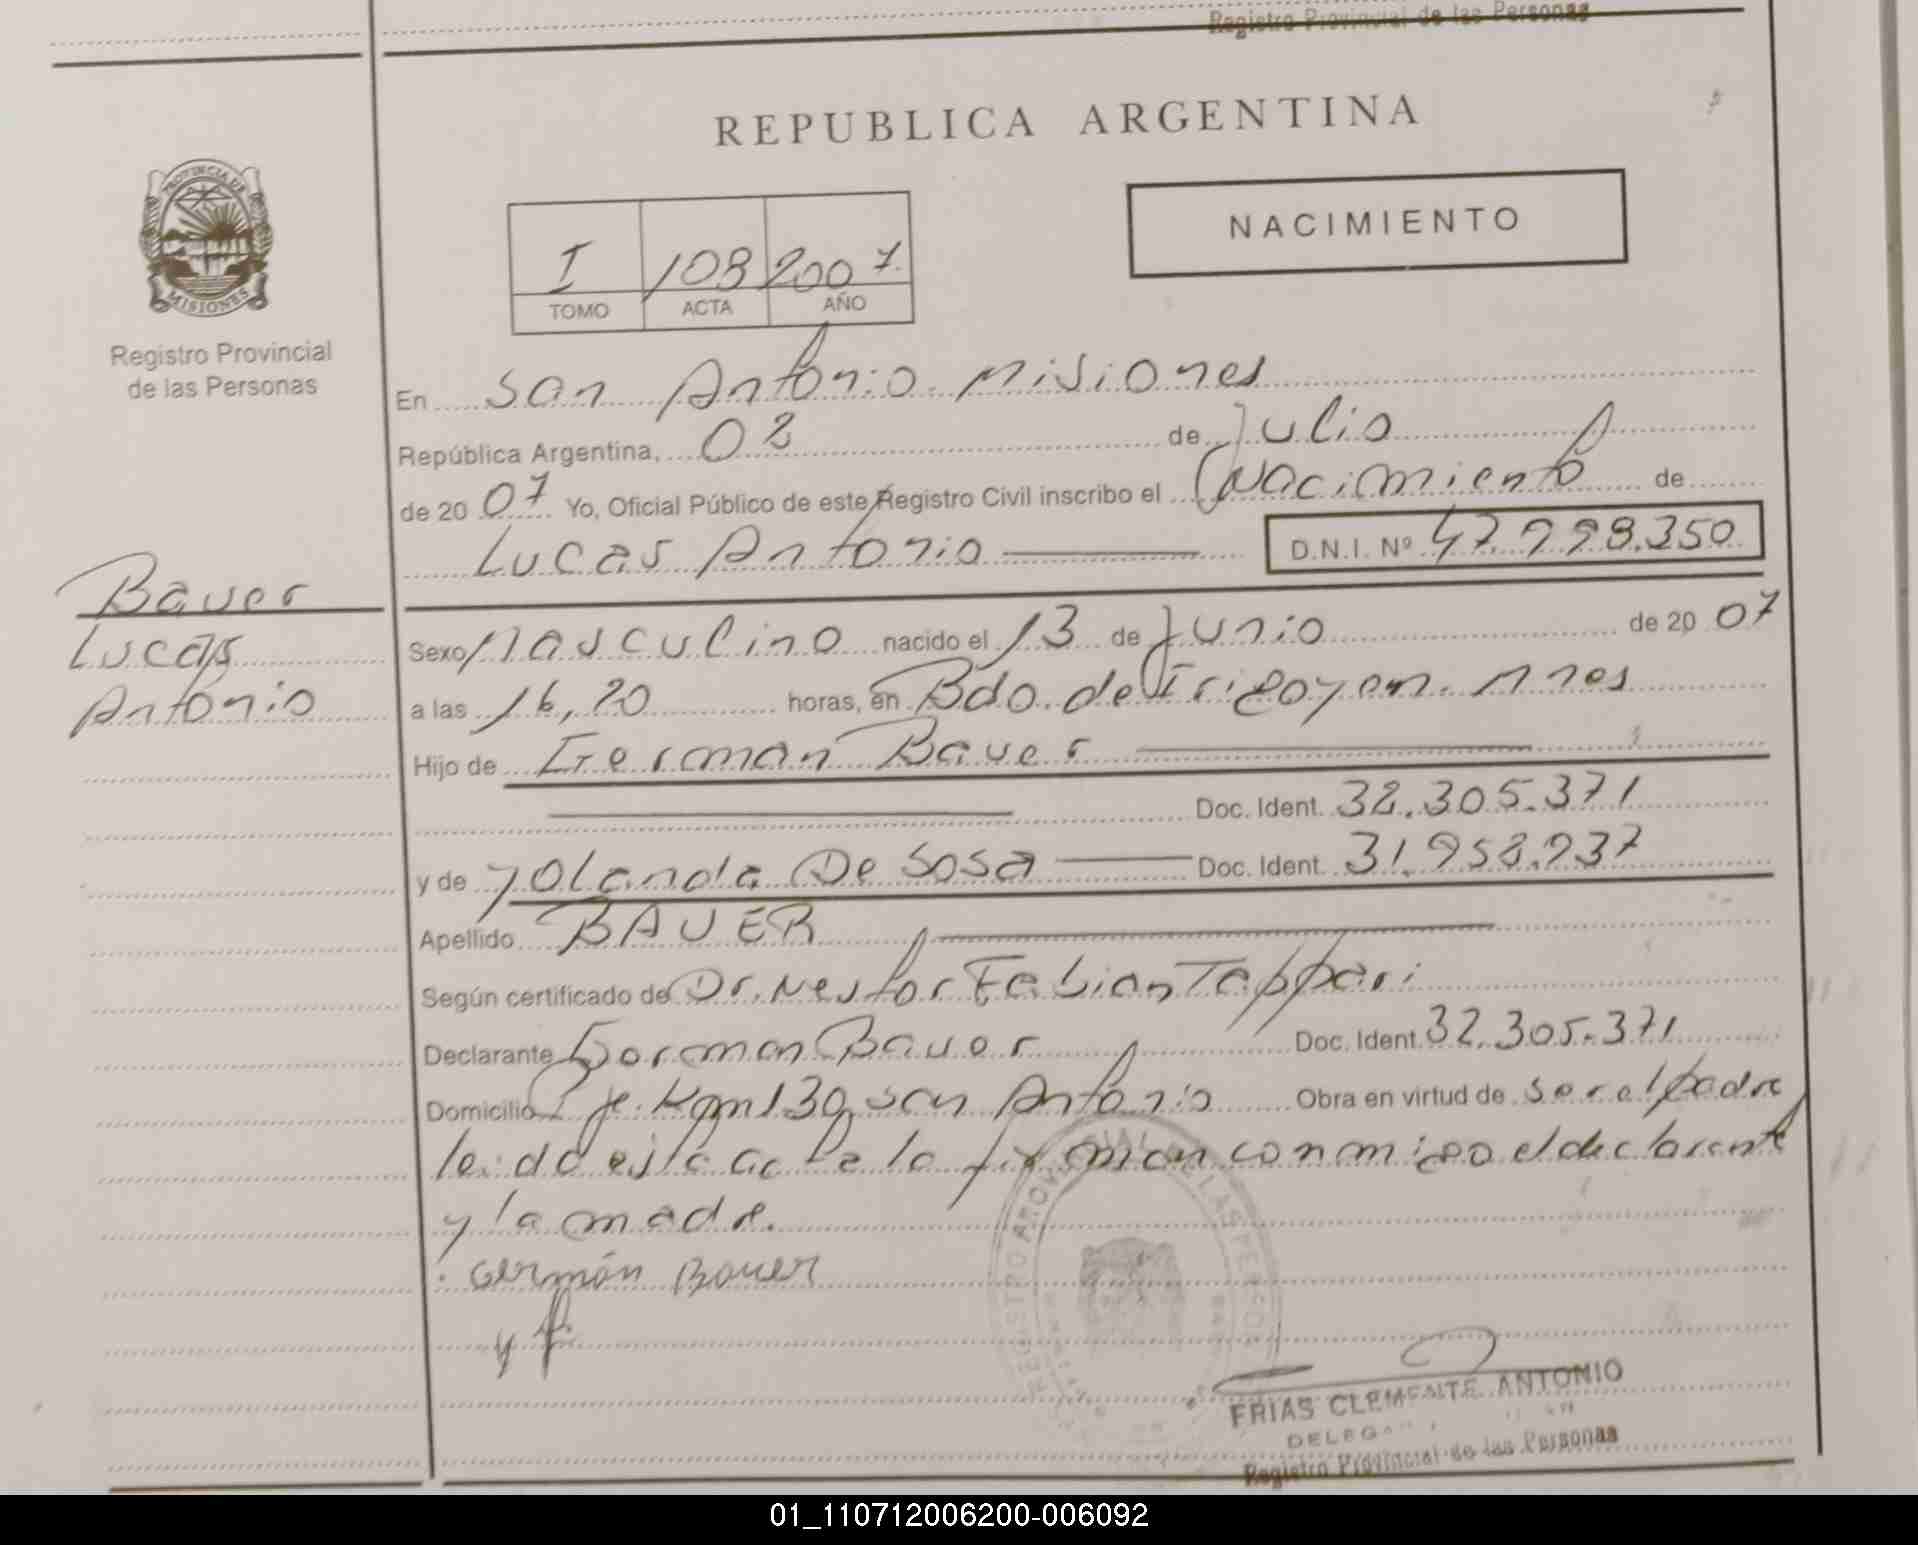 Registro Provincial de las Personas
REPUBLICA ARGENTINA
PROVINCIA DE
MISIONES
NACIMIENTO
I 108 2007
TOMO ACTA AÑO
Registro Provincial
de las Personas
En San Antonio Misiones
República Argentina, 02 de Julio
de 20 07 Yo, Oficial Público de este Registro Civil inscribo el Nacimiento de
Lucas Antonio D.N.I. Nº 47.998.350
Bauer
Lucas
Antonio
Sexo Masculino nacido el 13 de Junio de 20 07
a las 16,20 horas, en Bdo. de Irigoyen. Mnes
Hijo de German Bauer
Doc. Ident. 32.305.371
y de Yolanda De Sosa Doc. Ident. 31.958.937
Apellido BAUER
Según certificado de Dr. Nestor Fabian Tappari
Declarante German Bauer Doc. Ident. 32.305.371
Domicilio Pje. Kgm 130, San Antonio Obra en virtud de ser el padre
leida esta acta la firman conmigo el declarante
y la madre.
German Bauer
FRIAS CLEMENTE ANTONIO
Registro Provincial de las Personas
01_110712006200-006092